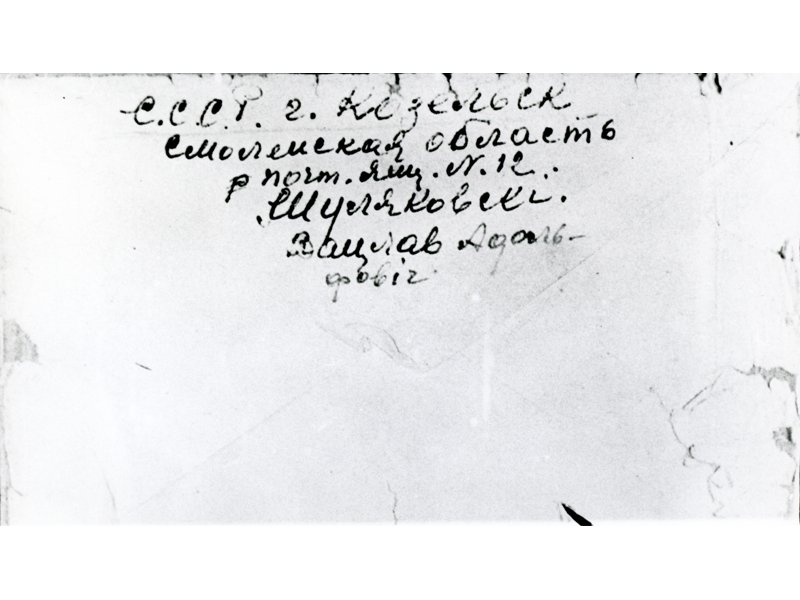 С.С.С.Р. г. Козельск
Смоленская область
почт. ящ. N. 12.
Шуляковскі.
Вацлав Адоль-
фовіч.